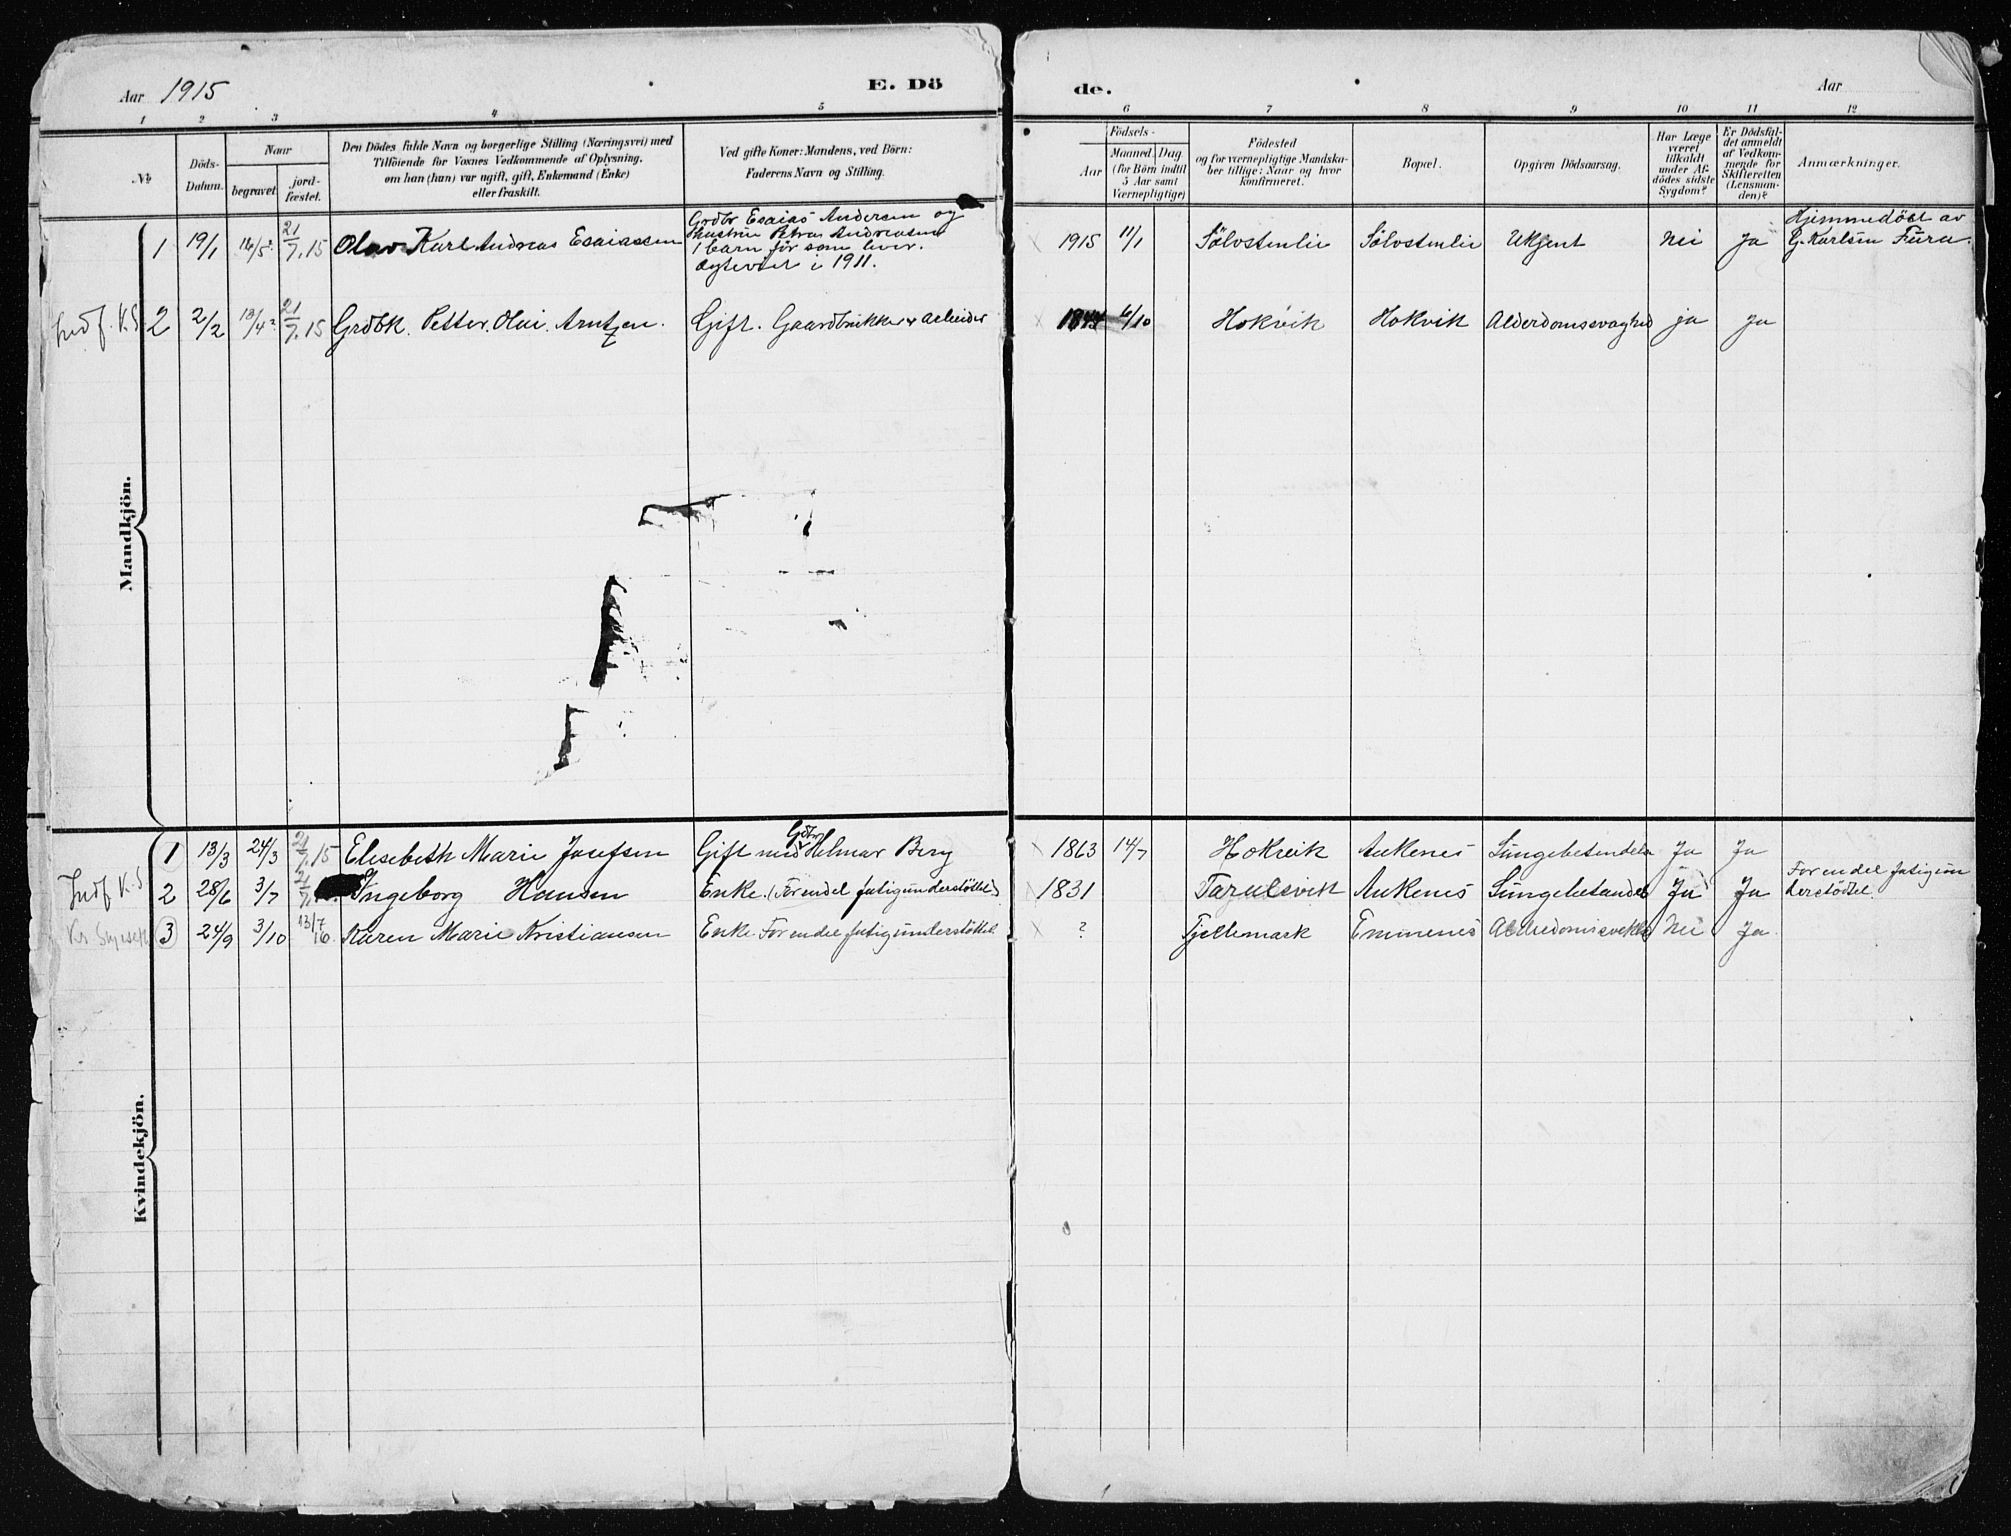 Aar 1915
E. Döde.
Aar
1 2 3 4 5 6 7 8 9 10 11 12
№
Döds-Datum.
Naar
begravet.
jord-fæstet.
Den Dödes fulde Navn og borgerlige Stilling (Næringsvei) med
Tilföiende for Voxnes Vedkommende af Oplysning,
om han (hun) var ugift, gift, Enkemand (Enke)
eller fraskilt.
Ved gifte Koner: Mandens, ved Börn:
Faderens Navn og Stilling.
Födsels-
Aar
Maaned. Dag.
(for Börn indtil
5 Aar samt
Værnepligtige)
Födested
og for værnepligtige Mandska-
ber tillige: Naar og hvor
konfirmeret.
Bopæl.
Opgiven Dödsaarsag.
Har Læge
været
tilkaldt
under Af-
dödes sidste
Sygdom?
Er Dödsfal-
det anmeldt
af Vedkom-
mende for
Skifteretten
(Lensman-
den)?
Anmærkninger.
Mandkjön.
1 19/1 16/5 21/7.15 Olav Karl Andreas Esaiassen
Grdbr Esaias Andersen og
hustru Petra Andreasen
1 barn för som lever.
Ægteviet i 1911.
1915 11/1 Sölvstenlie Sölvstenlie Ukjent Nei Ja
Hjemmedöbt av
G. Karlsen Fura.
Indf. K.S. 2 2/2 13/4 21/7.15 Grdbk. Petter. Olai. Arntzen. Gift. Gaardbrukker &amp; Arbeider
1844 6/10 Hokvik Hokvik Alderdomssvaghed ja ja
Kvindekjön.
1 13/3 24/3 21/7.15 Elisebeth Marie Josefsen Gift med Gdbr Helmar Berg
1863 14/7 Hokvik Ankenes Lungebetendels Ja Ja
Indf K.S 2 28/6 3/7 Ingeborg Hansen Enke. (Forendel fatigunderstöttet)
1831 Taraldsvik Ankenes Lungebetandels Ja Ja
Forendel fatigun
derstödtet.
3 24/9 3/10 13/7 16. Karen Marie Kristiansen Enke. Forendel fatigunderstöttet
? Fjellemark Emmenes Alderdomssvekke Nei Ja.